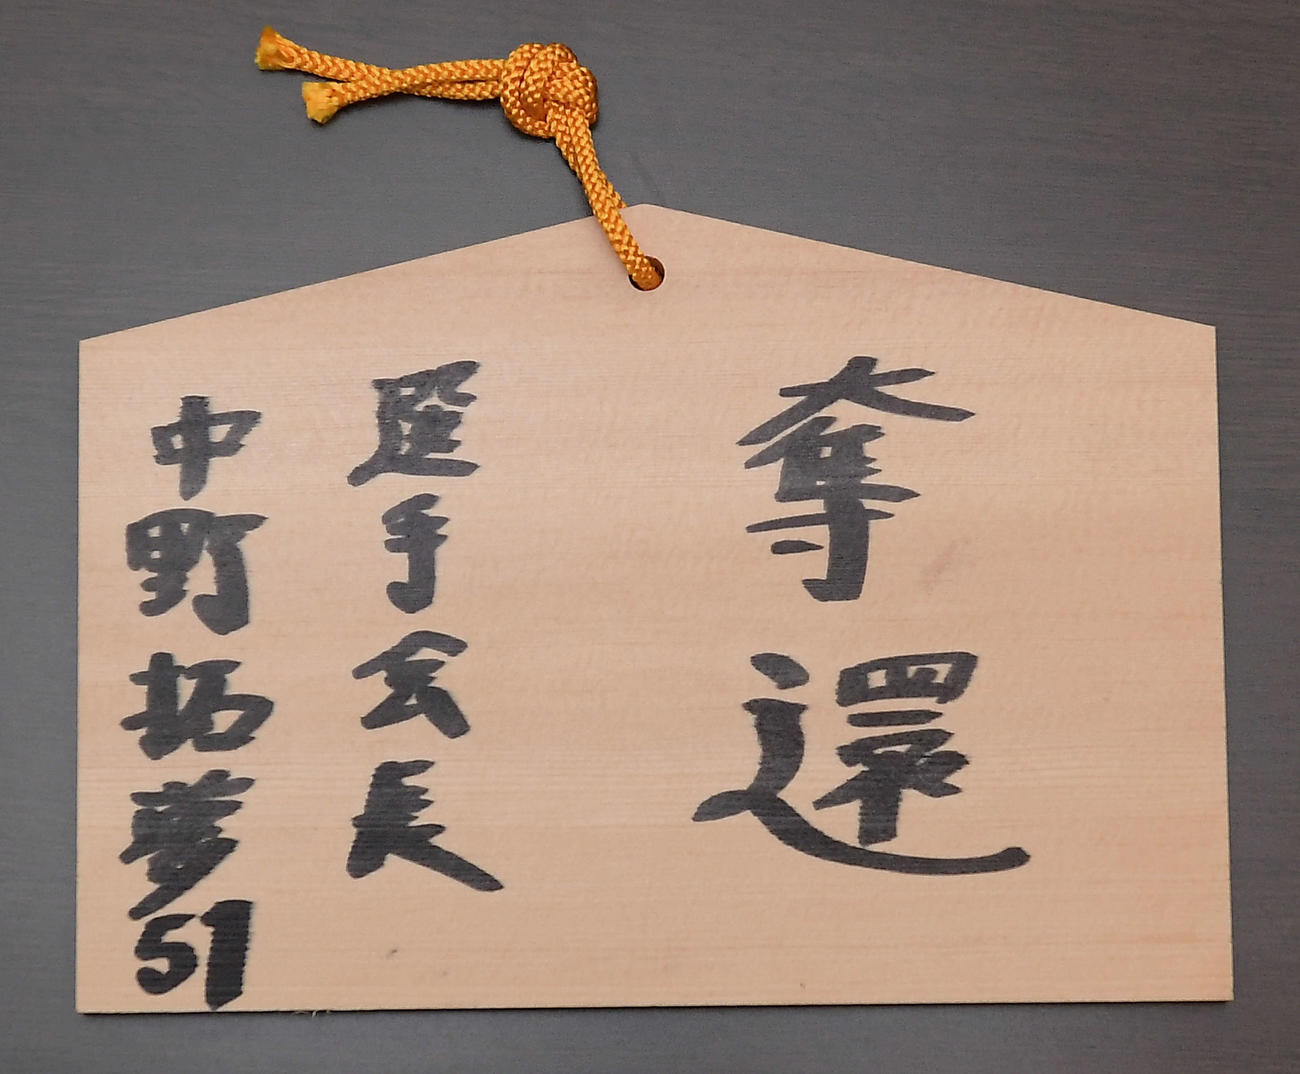 奪還
選手会長
中野拓夢51